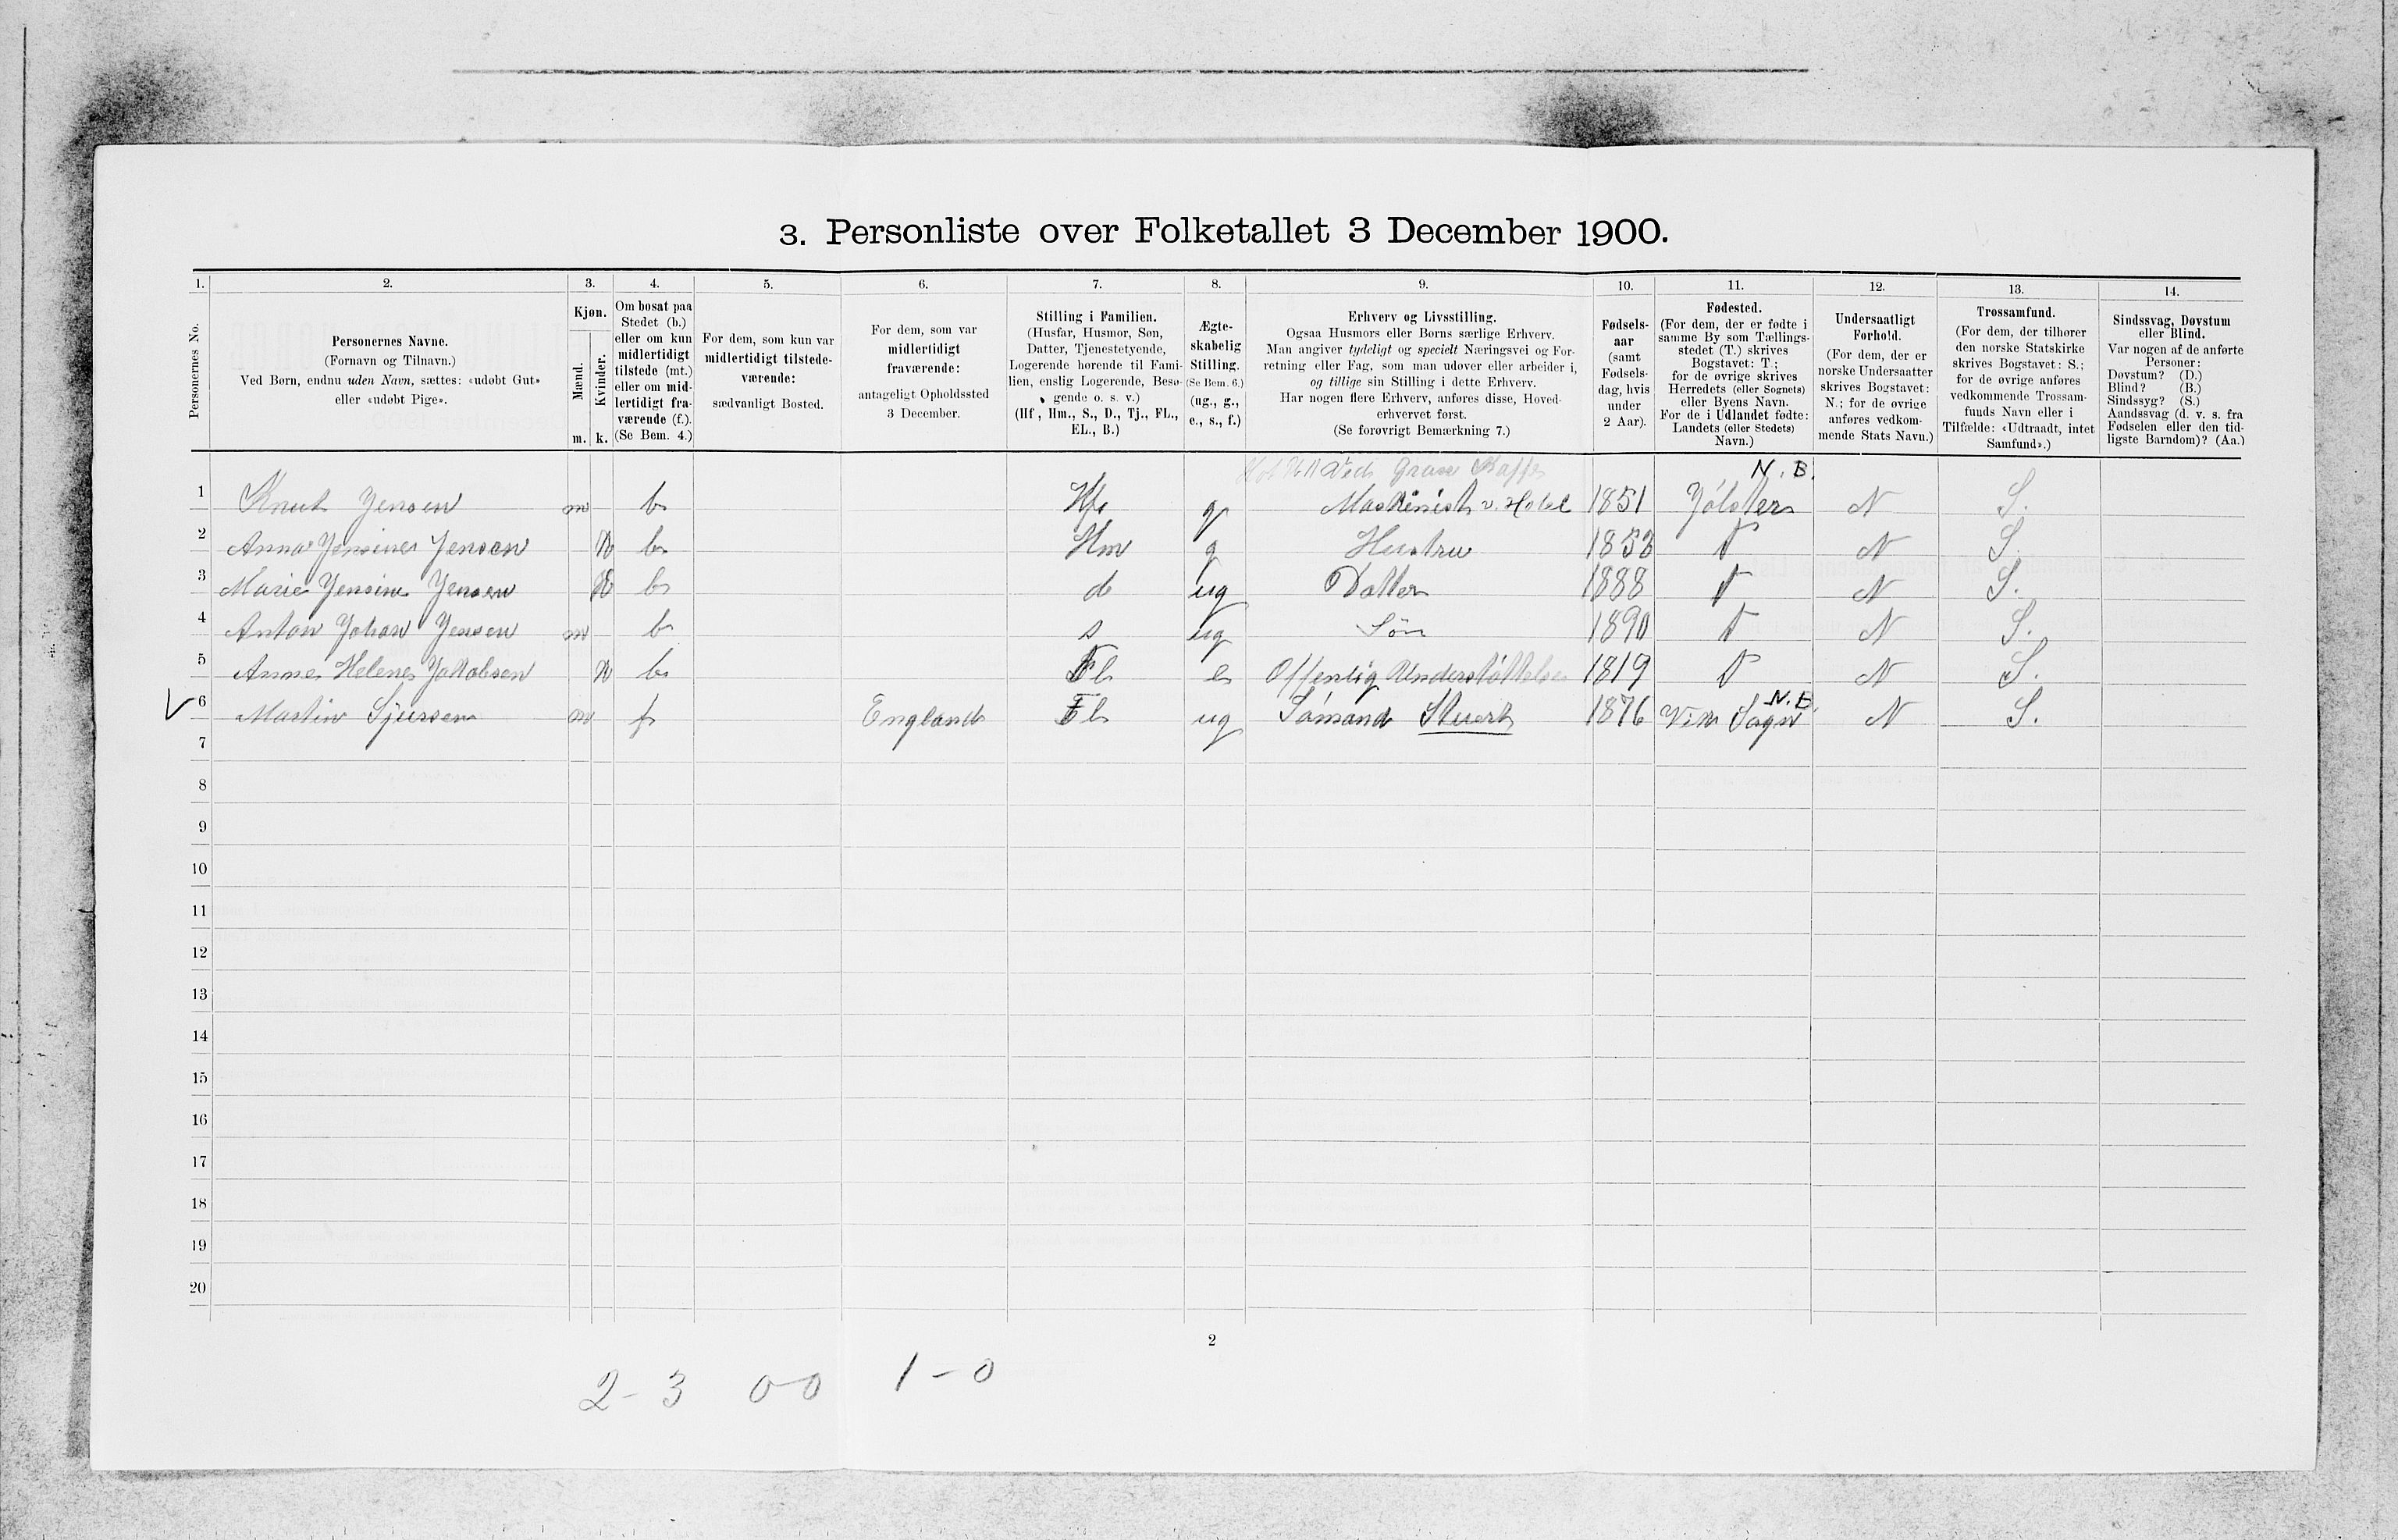 3. Personliste over Folketallet 3 December 1900.
1. 2. 3. 4. 5. 6. 7. 8. 9. 10. 11. 12. 13. 14.
Personernes No.
Personernes Navne.
(Fornavn og Tilnavn.)
Ved Børn, endnu uden Navn, sættes: «udøbt Gut»
eller «udøbt Pige».
Kjøn.
Mænd.
Kvinder.
m. k.
Om bosat paa
Stedet (b.)
eller om kun
midlertidigt
tilstede (mt.)
eller om mid-
lertidigt fra-
værende (f.).
(Se Bem. 4.)
For dem, som kun var
midlertidigt tilstede-
værende:
sædvanligt Bosted.
For dem, som var
midlertidigt
fraværende:
antageligt Opholdssted
3 December.
Stilling i Familien.
(Husfar, Husmor, Søn,
Datter, Tjenestetyende,
Logerende hørende til Fami-
lien, enslig Logerende, Besø-
gende o. s. v.)
(Hf., Hm., S., D., Tj., FL.,
EL., B.)
Ægte-
skabelig
Stilling.
(Se Bem. 6.)
(ug., g.,
e., s., f.)
Erhverv og Livsstilling.
Ogsaa Husmors eller Børns særlige Erhverv.
Man angiver tydeligt og specielt Næringsvei og For-
retning eller Fag, som man udøver eller arbeider i,
og tillige sin Stilling i dette Erhverv.
Har nogen flere Erhverv, anføres disse, Hoved-
erhvervet først.
(Se forøvrigt Bemærkning 7.)
Fødsels-
aar
(samt
Fødsels-
dag, hvis
under
2 Aar).
Fødested.
(For dem, der er fødte i
samme By som Tællings-
stedet (T.) skrives
Bogstavet: T.;
for de øvrige skrives
Herredets (eller Sognets)
eller Byens Navn.
For de i Udlandet fødte:
Landets (eller Stedets)
Navn.)
Undersaatligt
Forhold.
(For dem, der er
norske Undersaatter
skrives Bogstavet:
N.; for de øvrige
anføres vedkom-
mende Stats Navn.)
Trossamfund.
(For dem, der tilhører
den norske Statskirke
skrives Bogstavet: S.;
for de øvrige anføres
vedkommende Trossam-
funds Navn eller i
Tilfælde: «Udtraadt, intet
Samfund».)
Sindssvag, Døvstum
eller Blind.
Var nogen af de anførte
Personer:
Døvstum? (D.)
Blind? (B.)
Sindssyg? (S.)
Aandssvag (d. v. s. fra
Fødselen eller den tid-
ligste Barndom)? (Aa.)
N. B.
1 Knut Jensen m b Hf g Maskinist v. Hotel 1851 Jölster N S.
2 Anna Jensine Jensen k b Hm g Hustru 1853 T N S.
3 Marie Jensine Jensen k b d ug Datter 1888 T N S.
4 Anton Johan Jensen m b s ug Sön 1890 T N S.
5 Anne Helene Jakobsen k b Fl e Offentlig Understöttelse 1819 T N S.
N. B.
6 Martin Sjursen m f England Fl ug Sömand Stuert 1876 Vik Sogn N S.
7
8
9
10
11
12
13
14
15
16
17
18
19
20
2
2 - 3 0-0 1 - 0